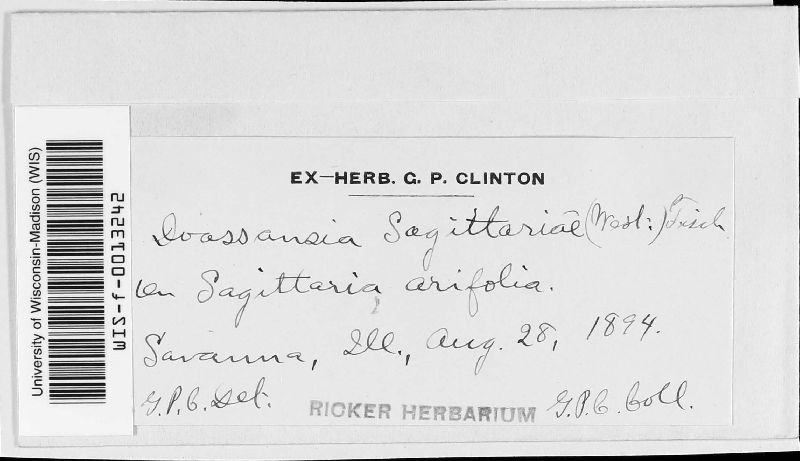 EX-HERB. G. P. CLINTON
Doassansia Sagittariae (West.) Fisch
On Sagittaria arifolia.
Savanna, Ill., Aug. 28, 1894.
G.P.C. Det. RICKER HERBARIUM G.P.C. Coll.
University of Wisconsin-Madison (WIS)
WIS-f-0013242